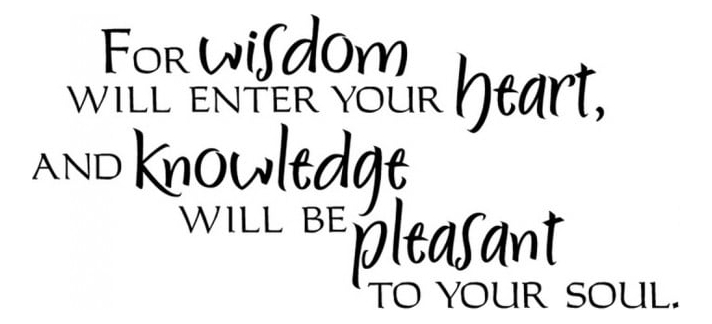 For wisdom
will enter your heart,
and knowledge
will be pleasant
to your soul.